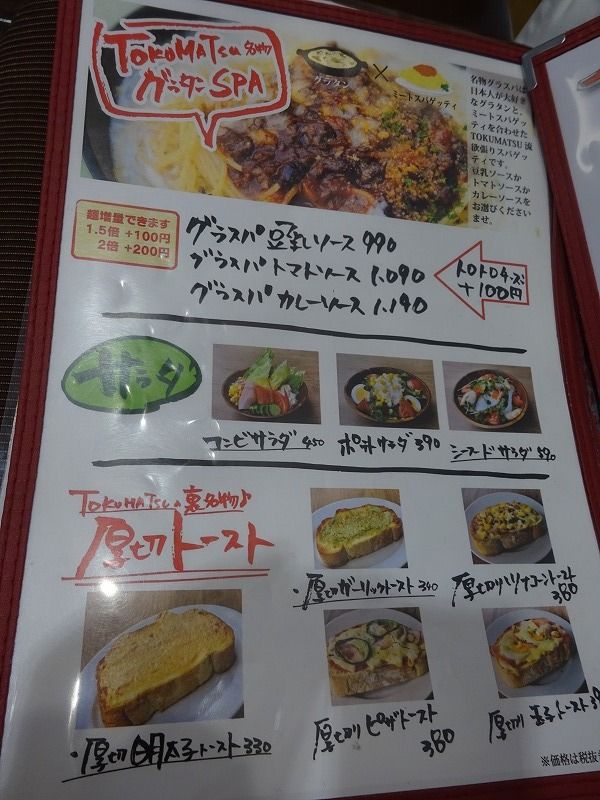 TOKUMATSU 名物
グラタンSPA
グラタン
×
ミートスパゲッティ
名物グラスパは
日本人が大好き
なグラタンと、
ミートスパゲッ
ティを合わせた
TOKUMATSU 流
欲張りスパゲッ
ティです。
豆乳ソースか
トマトソースか
カレーソースを
お選びください
ませ。
麺増量できます
1.5倍 +100円
2倍 +200円
グラスパ 豆乳ソース 990
グラスパ トマトソース 1,090
グラスパ カレーソース 1,190
トロトロチーズ
+100円
サラダ
コンビサラダ 450
ポテトサラダ 390
シーフードサラダ 590
TOKUMATSU 裏名物♪
厚切トースト
・厚切ガーリックトースト 340
厚切りツナコーントースト
380
・厚切明太子トースト 330
厚切りピザトースト
380
厚切り玉子トースト
※価格は税抜